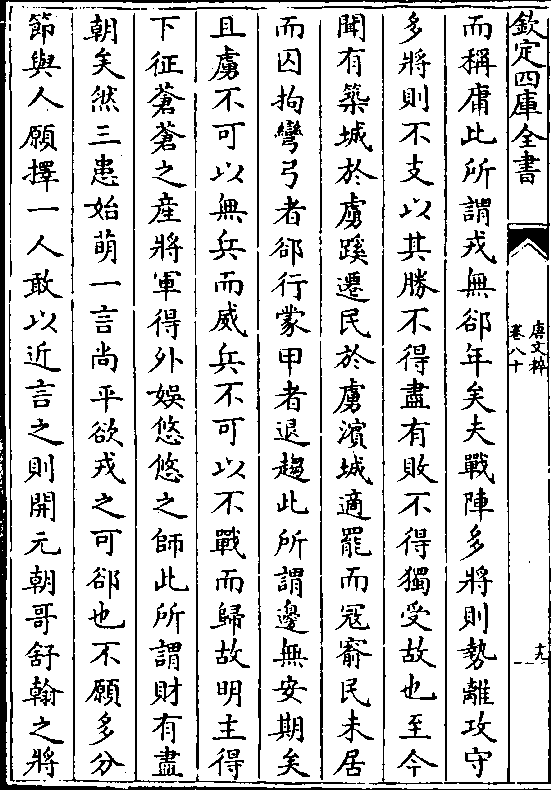 欽定四庫全書
唐文粹
卷八十
十九
而稱庸此所謂戎無郤年矣夫戰陣多將則勢離攻守
多將則不支以其勝不得盡有敗不得獨受故也至今
聞有築城於虜蹊遷民於虜濱城適罷而冦窬民未居
而囚拘彎弓者郤行蒙甲者退趨此所謂邊無安期矣
且虜不可以無兵而威兵不可以不戰而歸故明主得
下征蒼蒼之産將軍得外娛悠悠之師此所謂財有盡
朝矣然三患始萌一言尚平欲戎之可郤也不願多分
節與人願擇一人敢以近言之則開元朝哥舒翰之將